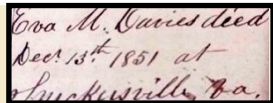 Eva M. Davies died
Decr. 13th. 1851 at
Snickersville Va.